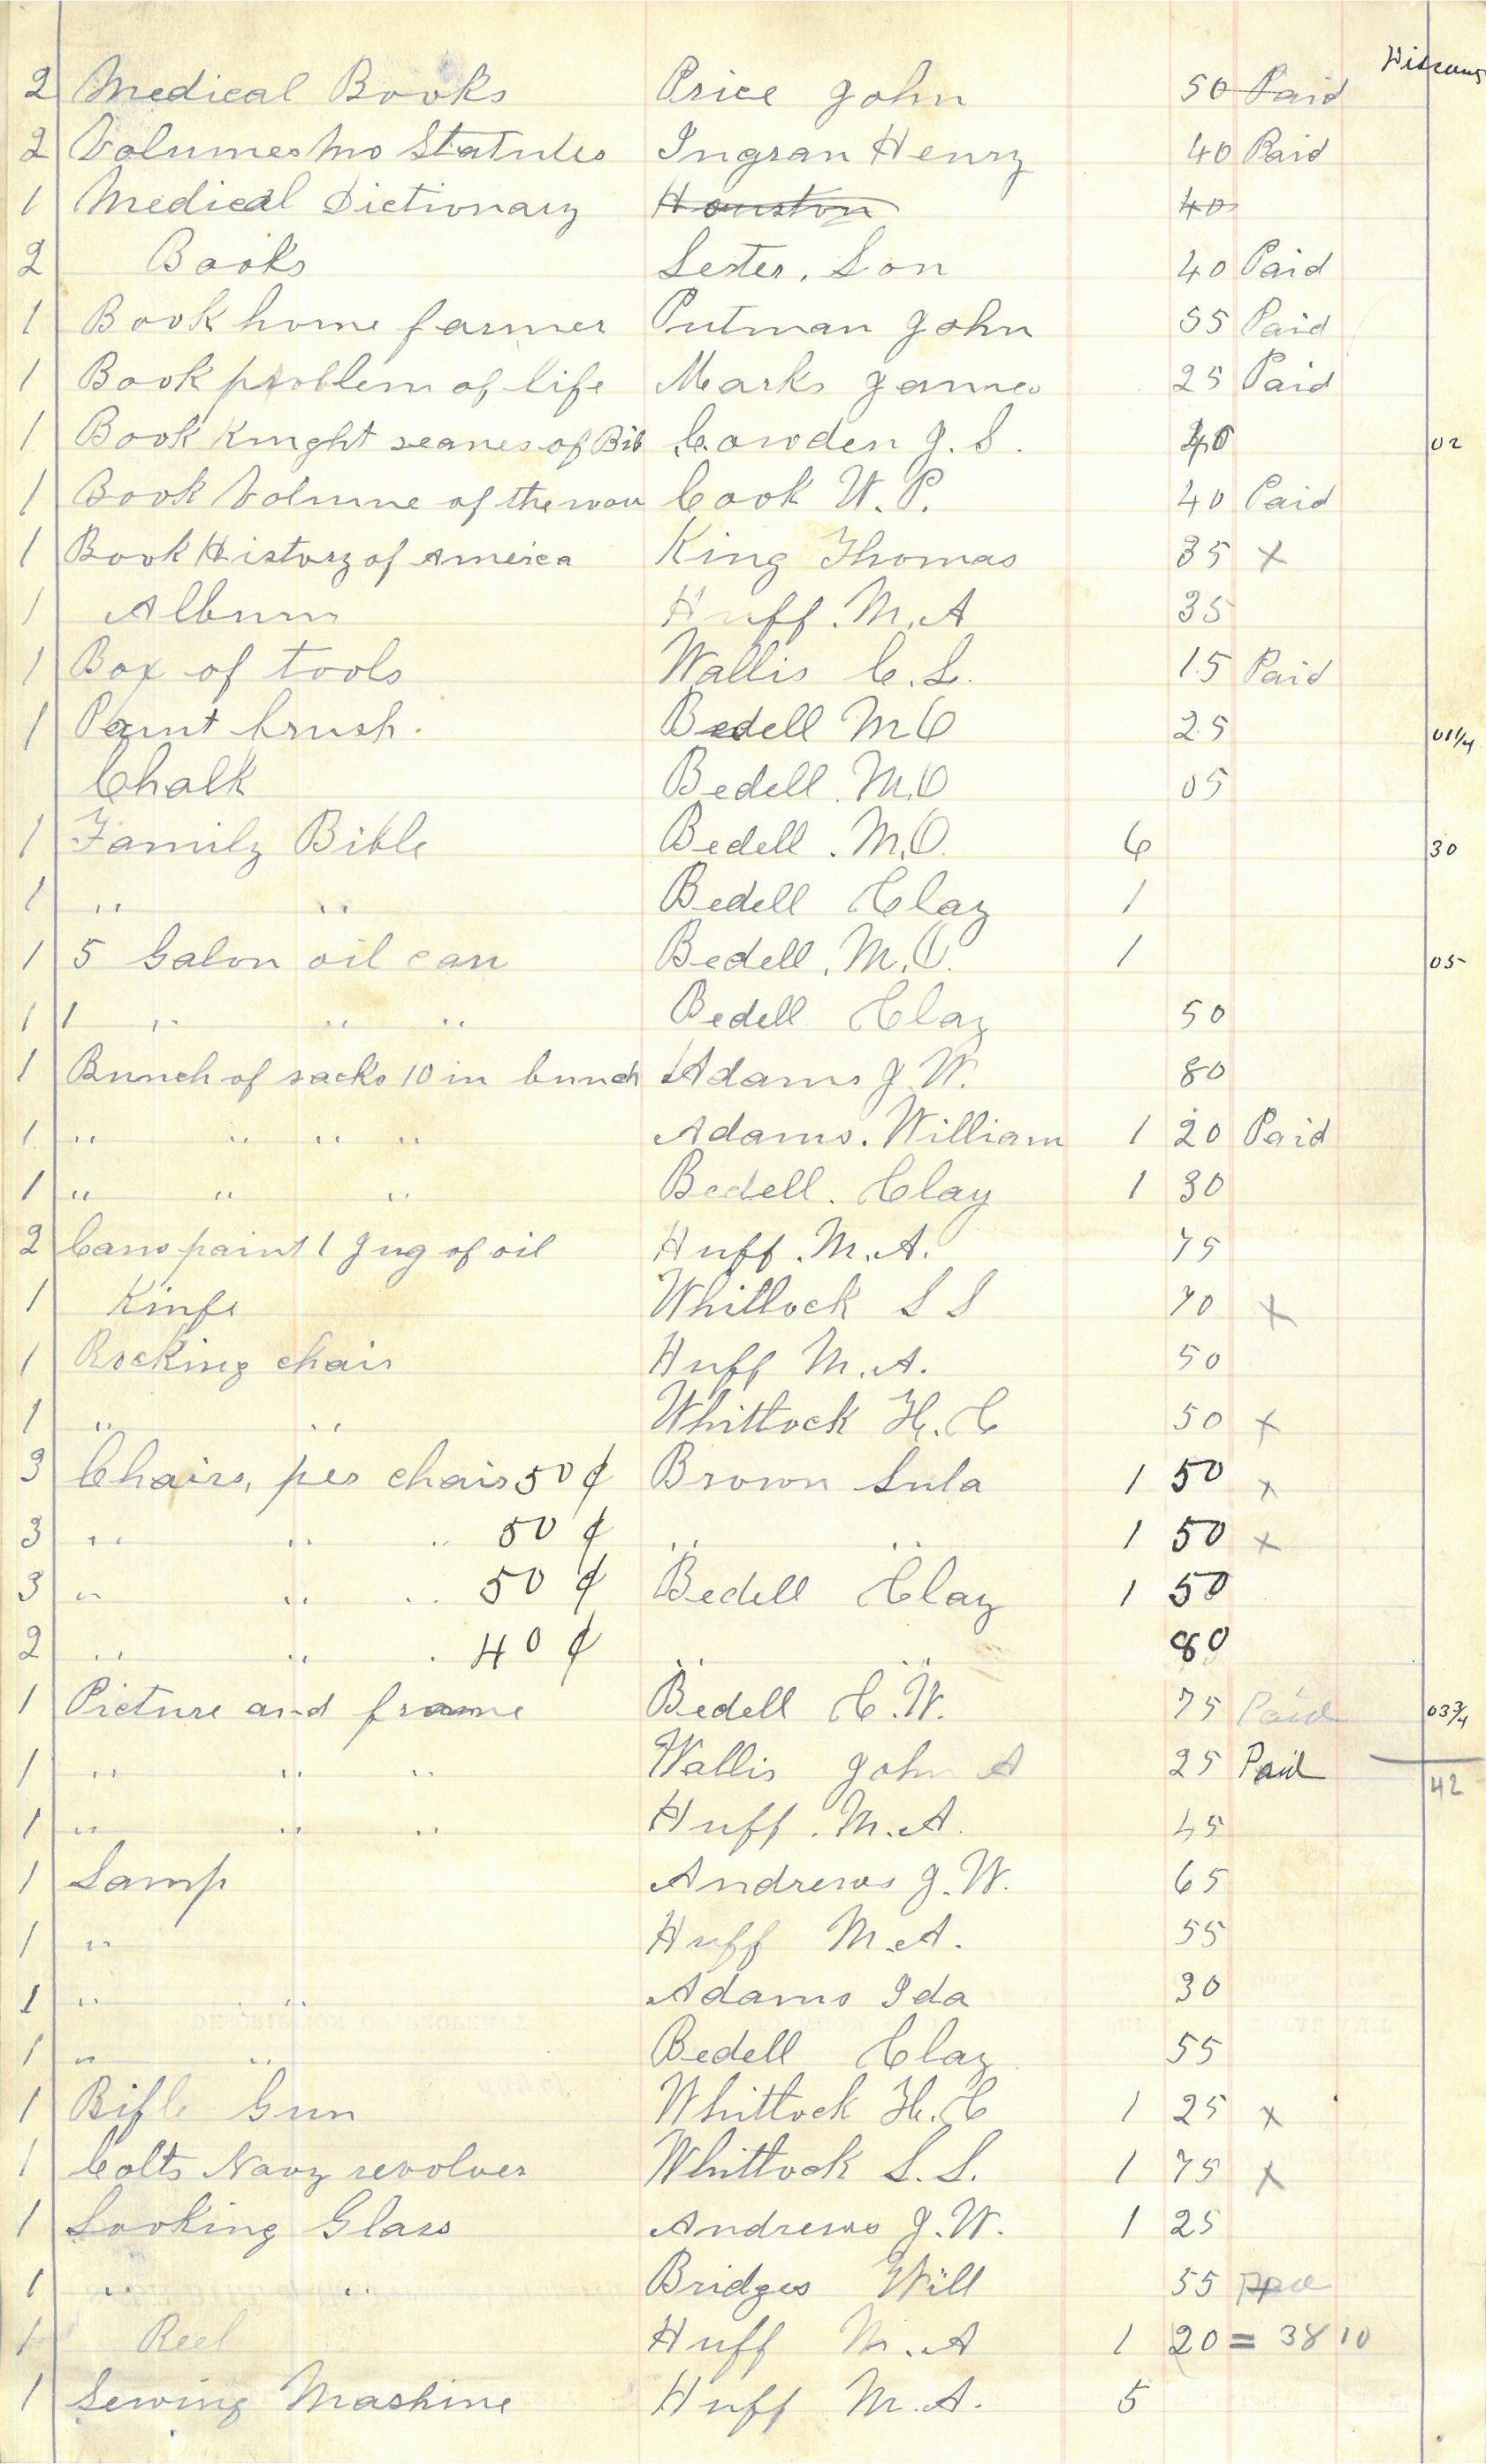 Discount
2 Medical Books Price John 50 Paid
2 Volumes Mo Statutes Ingran Henry 40 Paid
1 Medical Dictionary Houston 40
2 Books Lester, Lon 40 Paid
1 Book home farmer Putman John 55 Paid
1 Book problem of life Marks James 25 Paid
1 Book Knight seanes of Bib Cowden J. S. 40 02
1 Book Volume of the wou Cook W. P. 40 Paid
1 Book History of America King Thomas 35 x
1 Album Huff. M. A 35
1 Box of tools Wallis C. L. 15 Paid
1 Paint brush. Bedell M O 25 01 1/4
Chalk Bedell. M. O 05
1 Family Bible Bedell. M. O. 6 30
1 " " Bedell Clay 1
1 5 Galon oil can Bedell. M. O. 1 05
1 1 " " " Bedell Clay 50
1 Bunch of sacks 10 in bunch Adams J W. 80
1 " " " " Adams. William 1 20 Paid
1 " " " Bedell. Clay 1 30
2 Cans paint 1 Jug of oil Huff. M. A. 75
1 Kinfe Whitlock S S 70 x
1 Rocking chair Huff M. A. 50
1 " " Whittock H. C 50 x
3 Chairs, per chair 50 ¢ Brown Lula 1 50 x
3 " " " 50 ¢ " " 1 50 x
3 " " " 50 ¢ Bedell Clay 1 50
2 " " " 40 ¢ " " 80
1 Picture and frame Bedell C. W. 75 Paid 03 3/4
1 " " " Wallis John A 25 Paid 42
1 " " " Huff. M. A. 45
1 Lamp Andrews J. W. 65
1 " Huff M. A. 55
1 " " Adams Ida 30
1 " " Bedell Clay 55
1 Rifle Gun Whittock H. C 1 25 x
1 Colts Navy revolver Whittock S. S. 1 75 x
1 Looking Glass Andrews J. W. 1 25
1 " " Bridges Will 55
1 Reel Huff M. A 1 20 = 38 10
1 Sewing Mashine Huff M. A. 5